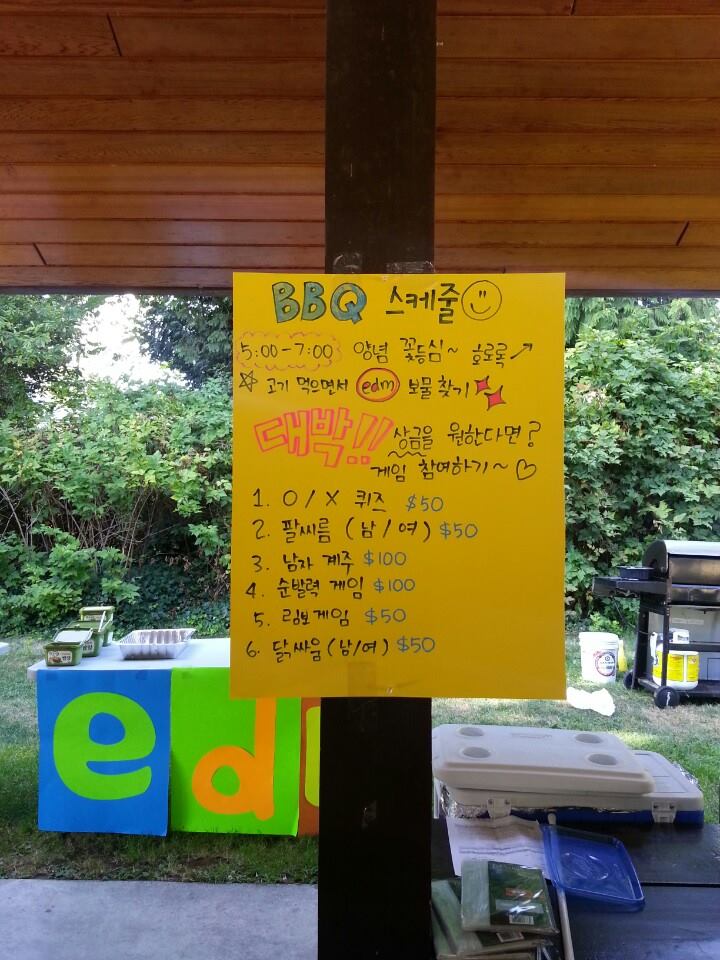 BBQ 스케줄
5:00-7:00 양념 꽃등심~ 호로록
고기 먹으면서 edm 보물찾기
대박!! 상금을 원한다면?
게임 참여하기~♡
1. O / X 퀴즈 $50
2. 팔씨름 (남/여) $50
3. 남자 계주 $100
4. 순발력 게임 $100
5. 림보게임 $50
6. 닭싸움 (남/여) $50
ed